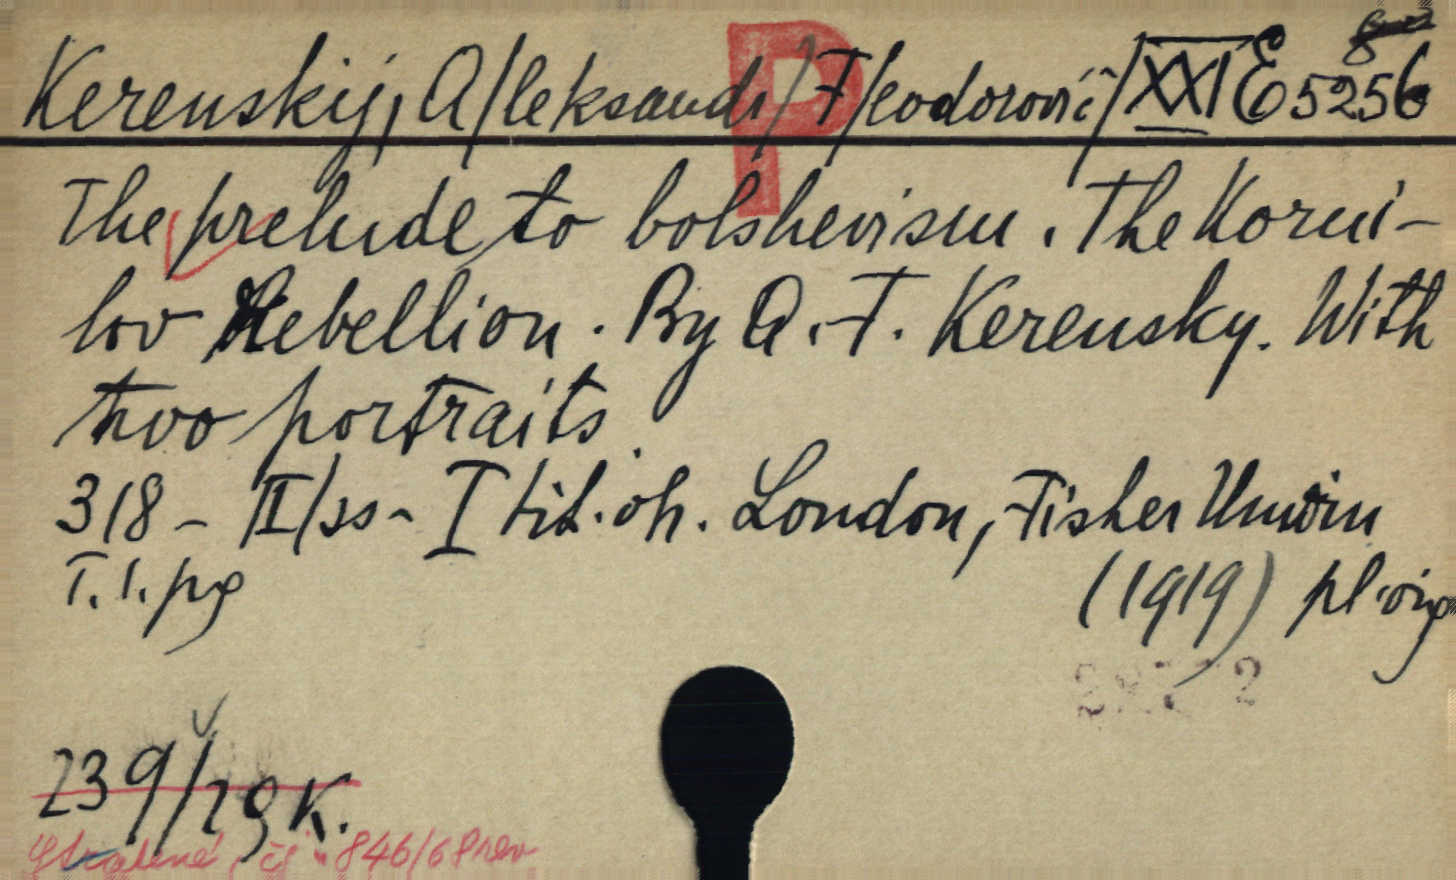 Kerenskij, A/leksandr/ F/eodorovič/ XXI E 5256
P
The prelude to bolshevism. The Korni-
lov Rebellion. By A. F. Kerensky. With
two portraits.
318 - /II/ ss - I tit. ob. London, Fisher Unwin
T. 1. pg (1919)
239/29 K.
Ztratené, čj. 846/68 rev